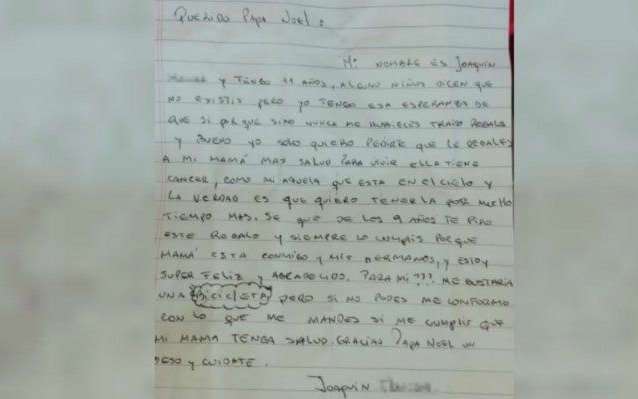 QUERIDO PAPA NOEL:
Mi NOMBRE ES JOAQUIN
Y TENGO 11 AÑOS, ALGUNO NIÑOS DICEN QUE
NO EXISTIS PERO YO TENGO ESA ESPERANZA DE
QUE SI PORQUE SINO NUNCA ME HUBIESES TRAIDO REGALOS
Y BUENO YO SOLO QUIERO PEDIRTE QUE LE REGALES
A MI MAMÁ MAS SALUD PARA VIVIR ELLA TIENE
CANCER, COMO MI ABUELA QUE ESTA EN EL CIELO Y
LA VERDAD ES QUE QUIERO TENERLA POR MUCHO
TIEMPO MAS. SE QUE DE LOS 9 AÑOS TE PIDO
ESTE REGALO Y SIEMPRE LO CUMPLIS PORQUE
MAMÁ ESTA CONMIGO Y MIS HERMANOS, Y ESTOY
SUPER FELIZ Y AGRADECIDO. PARA MI ??? ME GUSTARIA
UNA BICICLETA PERO SI NO PODES ME CONFORMO
CON LO QUE ME MANDES SI ME CUMPLIS QUE
MI MAMA TENGA SALUD. GRACIAS PAPA NOEL UN
BESO Y CUIDATE.
JOAQUIN